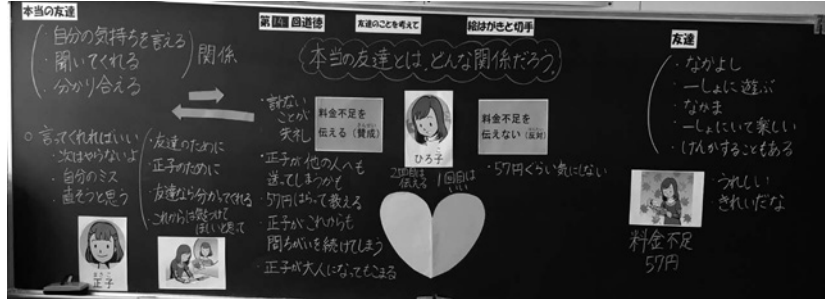 本当の友達
・自分の気持ちを言える
・聞いてくれる
・分かり合える
関係
○言ってくれればいい
・次はやらないよ
・自分のミス
・直そうと思う
・友達のために
・正子のために
・友達なら分かってくれる
・これからは気をつけて
ほしいと思って
正子
第 回道徳
友達のことを考えて
絵はがきと切手
本当の友達とは、どんな関係だろう。
ことが
失礼
・正子が他の人へも
送ってしまうかも
・57円はらって教える
・正子がこれからも
間ちがいを続けてしまう
・正子が大人になってもこまる
料金不足を
伝える(賛成)
ひろ子
2回目は
伝える
1回目は
いい
料金不足を
伝えない(反対)
・57円ぐらい気にしない
友達
・なかよし
・一しょに遊ぶ
・なかま
・一しょにいて楽しい
・けんかすることもある
・うれしい
・きれいだな
料金不足
57円